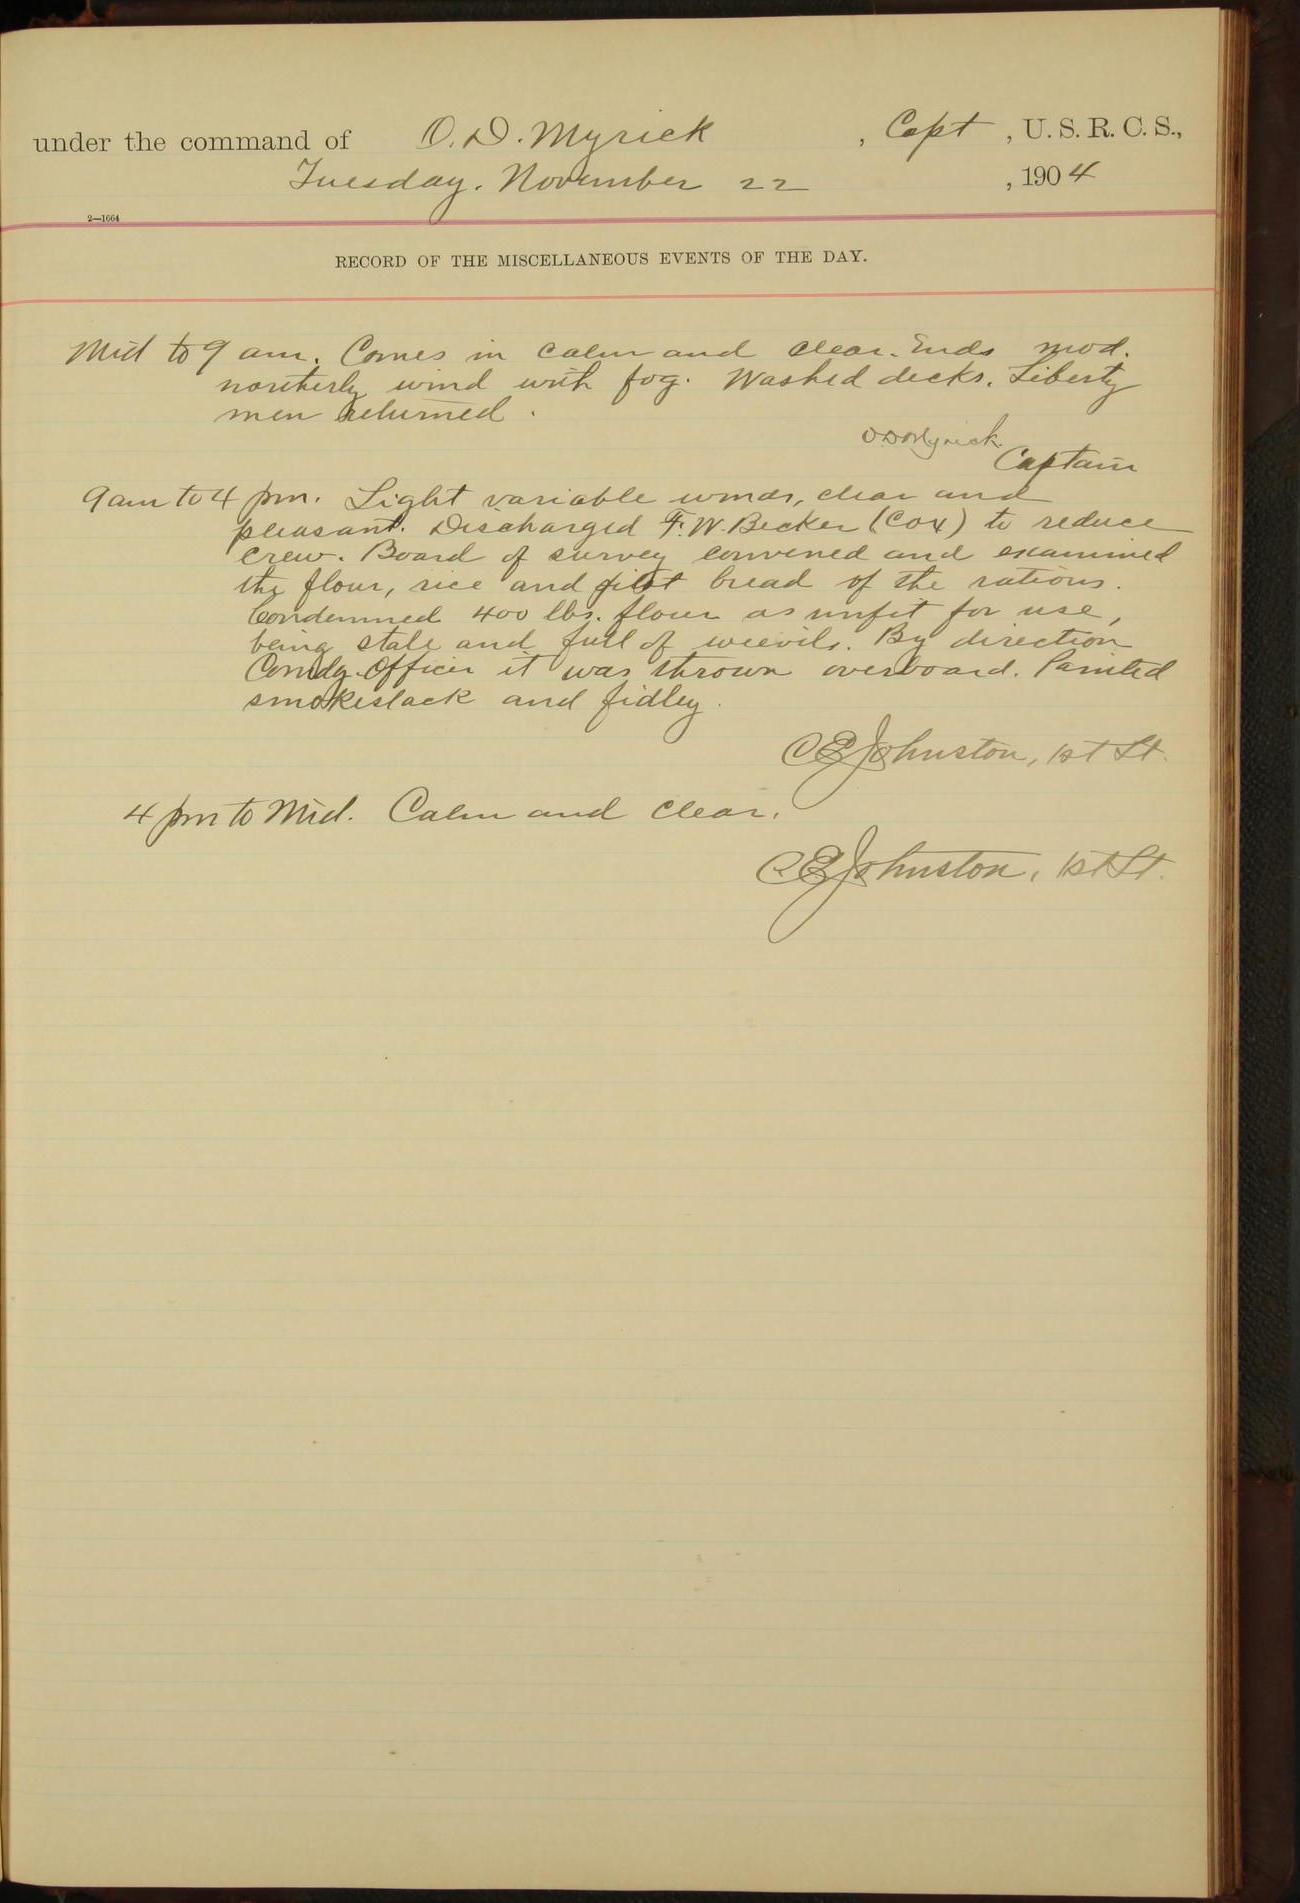 under the command of O. D. Myrick , Capt , U. S. R. C. S.,
Tuesday. November 22 , 1904
2—1664
RECORD OF THE MISCELLANEOUS EVENTS OF THE DAY.
Mid to 9 am. Comes in calm and clear. Ends mod.
northerly wind with fog. Washed decks. Liberty
men returned.
O D Myrick
Captain
9 am to 4 pm. Light variable winds, clear and
pleasant. Discharged F. W. Becker (Cox) to reduce
crew. Board of survey convened and examined
the flour, rice and pilot bread of the rations.
Condemned 400 lbs. flour as unfit for use,
being stale and full of weevils. By direction
Comdg. Officer it was thrown overboard. Painted
smokestack and fidley.
C E Johnston, 1st Lt.
4 pm to Mid. Calm and clear.
C E Johnston, 1st Lt.